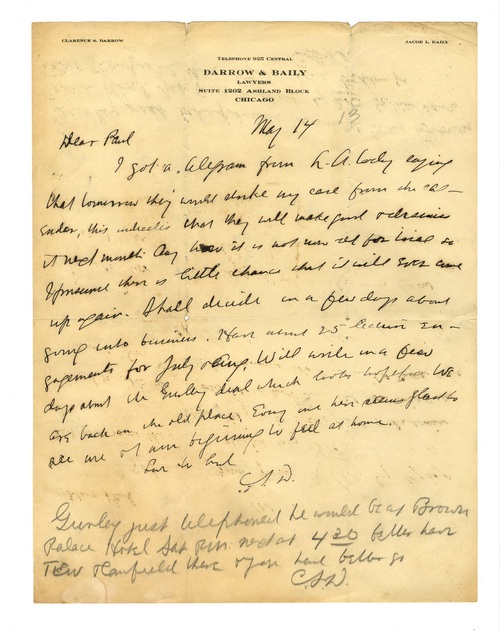 CLARENCE S. DARROW
JACOB L. BAILY
TELEPHONE 925 CENTRAL
DARROW & BAILY
LAWYERS
SUITE 1202 ASHLAND BLOCK
CHICAGO
May 14
Dear Paul
I got a telegram from L.A. today saying
that tomorrow they would strike my case from the cal-
endar, this indicates that they will make good & dismiss
it next month. Any how it is not now set for trial so
I presume there is little chance that it will ever come
up again. Shall decide in a few days about
going into business. Have about 25 lecture en-
gagements for July & Aug. Will write in a few
days about the Gurley deal which looks hopeful. We
are back in the old place. Every one here seems glad to
see me & I am beginning to feel at home.
C.S.D.
Gurley just telephoned he would be at Brown
Palace Hotel Sat next at 4 30 better have
there & you had better go
C.S.D.